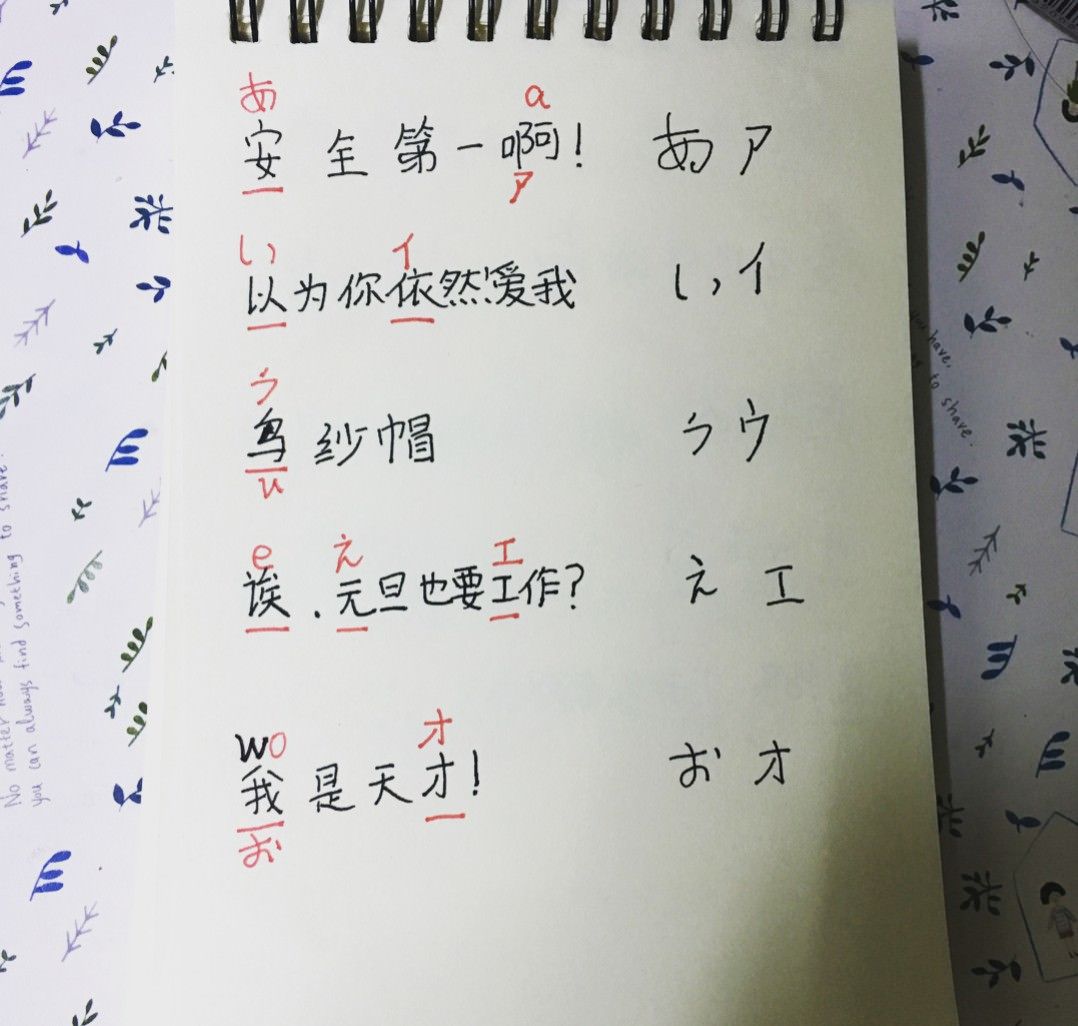 あ a
安全第一啊! あ ア
ア
い イ
以为你依然爱我 い イ
う
乌纱帽 う ウ
u
e え エ
诶.元旦也要工作? え エ
wo オ
我是天才! お オ
お
you have.
to share.
No matter
you can always find something to share.